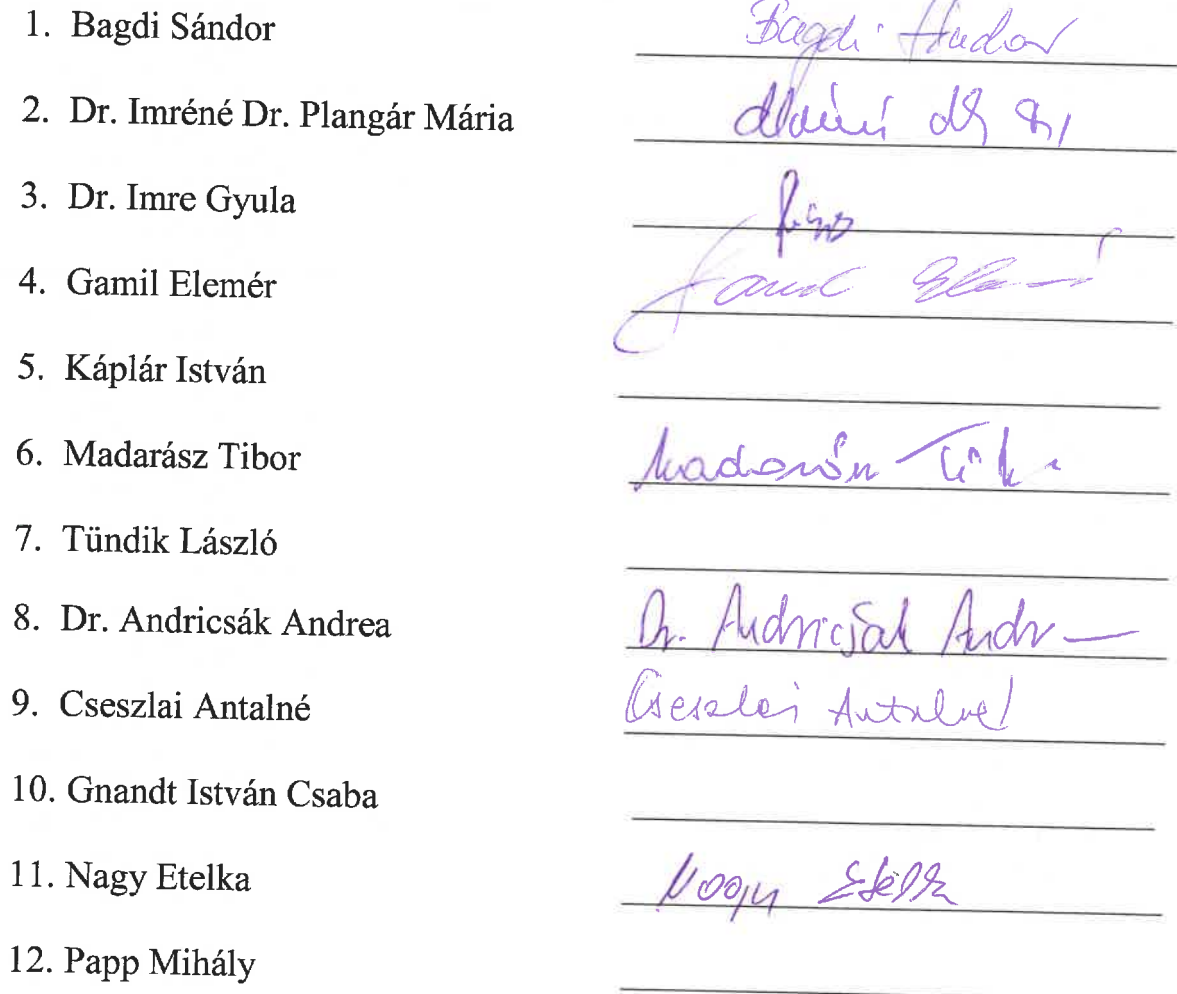 1. Bagdi Sándor Bagdi Sándor
2. Dr. Imréné Dr. Plangár Mária
3. Dr. Imre Gyula
4. Gamil Elemér
5. Káplár István
6. Madarász Tibor
7. Tündik László
8. Dr. Andricsák Andrea Dr. Andricsák
9. Cseszlai Antalné Cseszlai Antalné
10. Gnandt István Csaba
11. Nagy Etelka Nagy Etelka
12. Papp Mihály